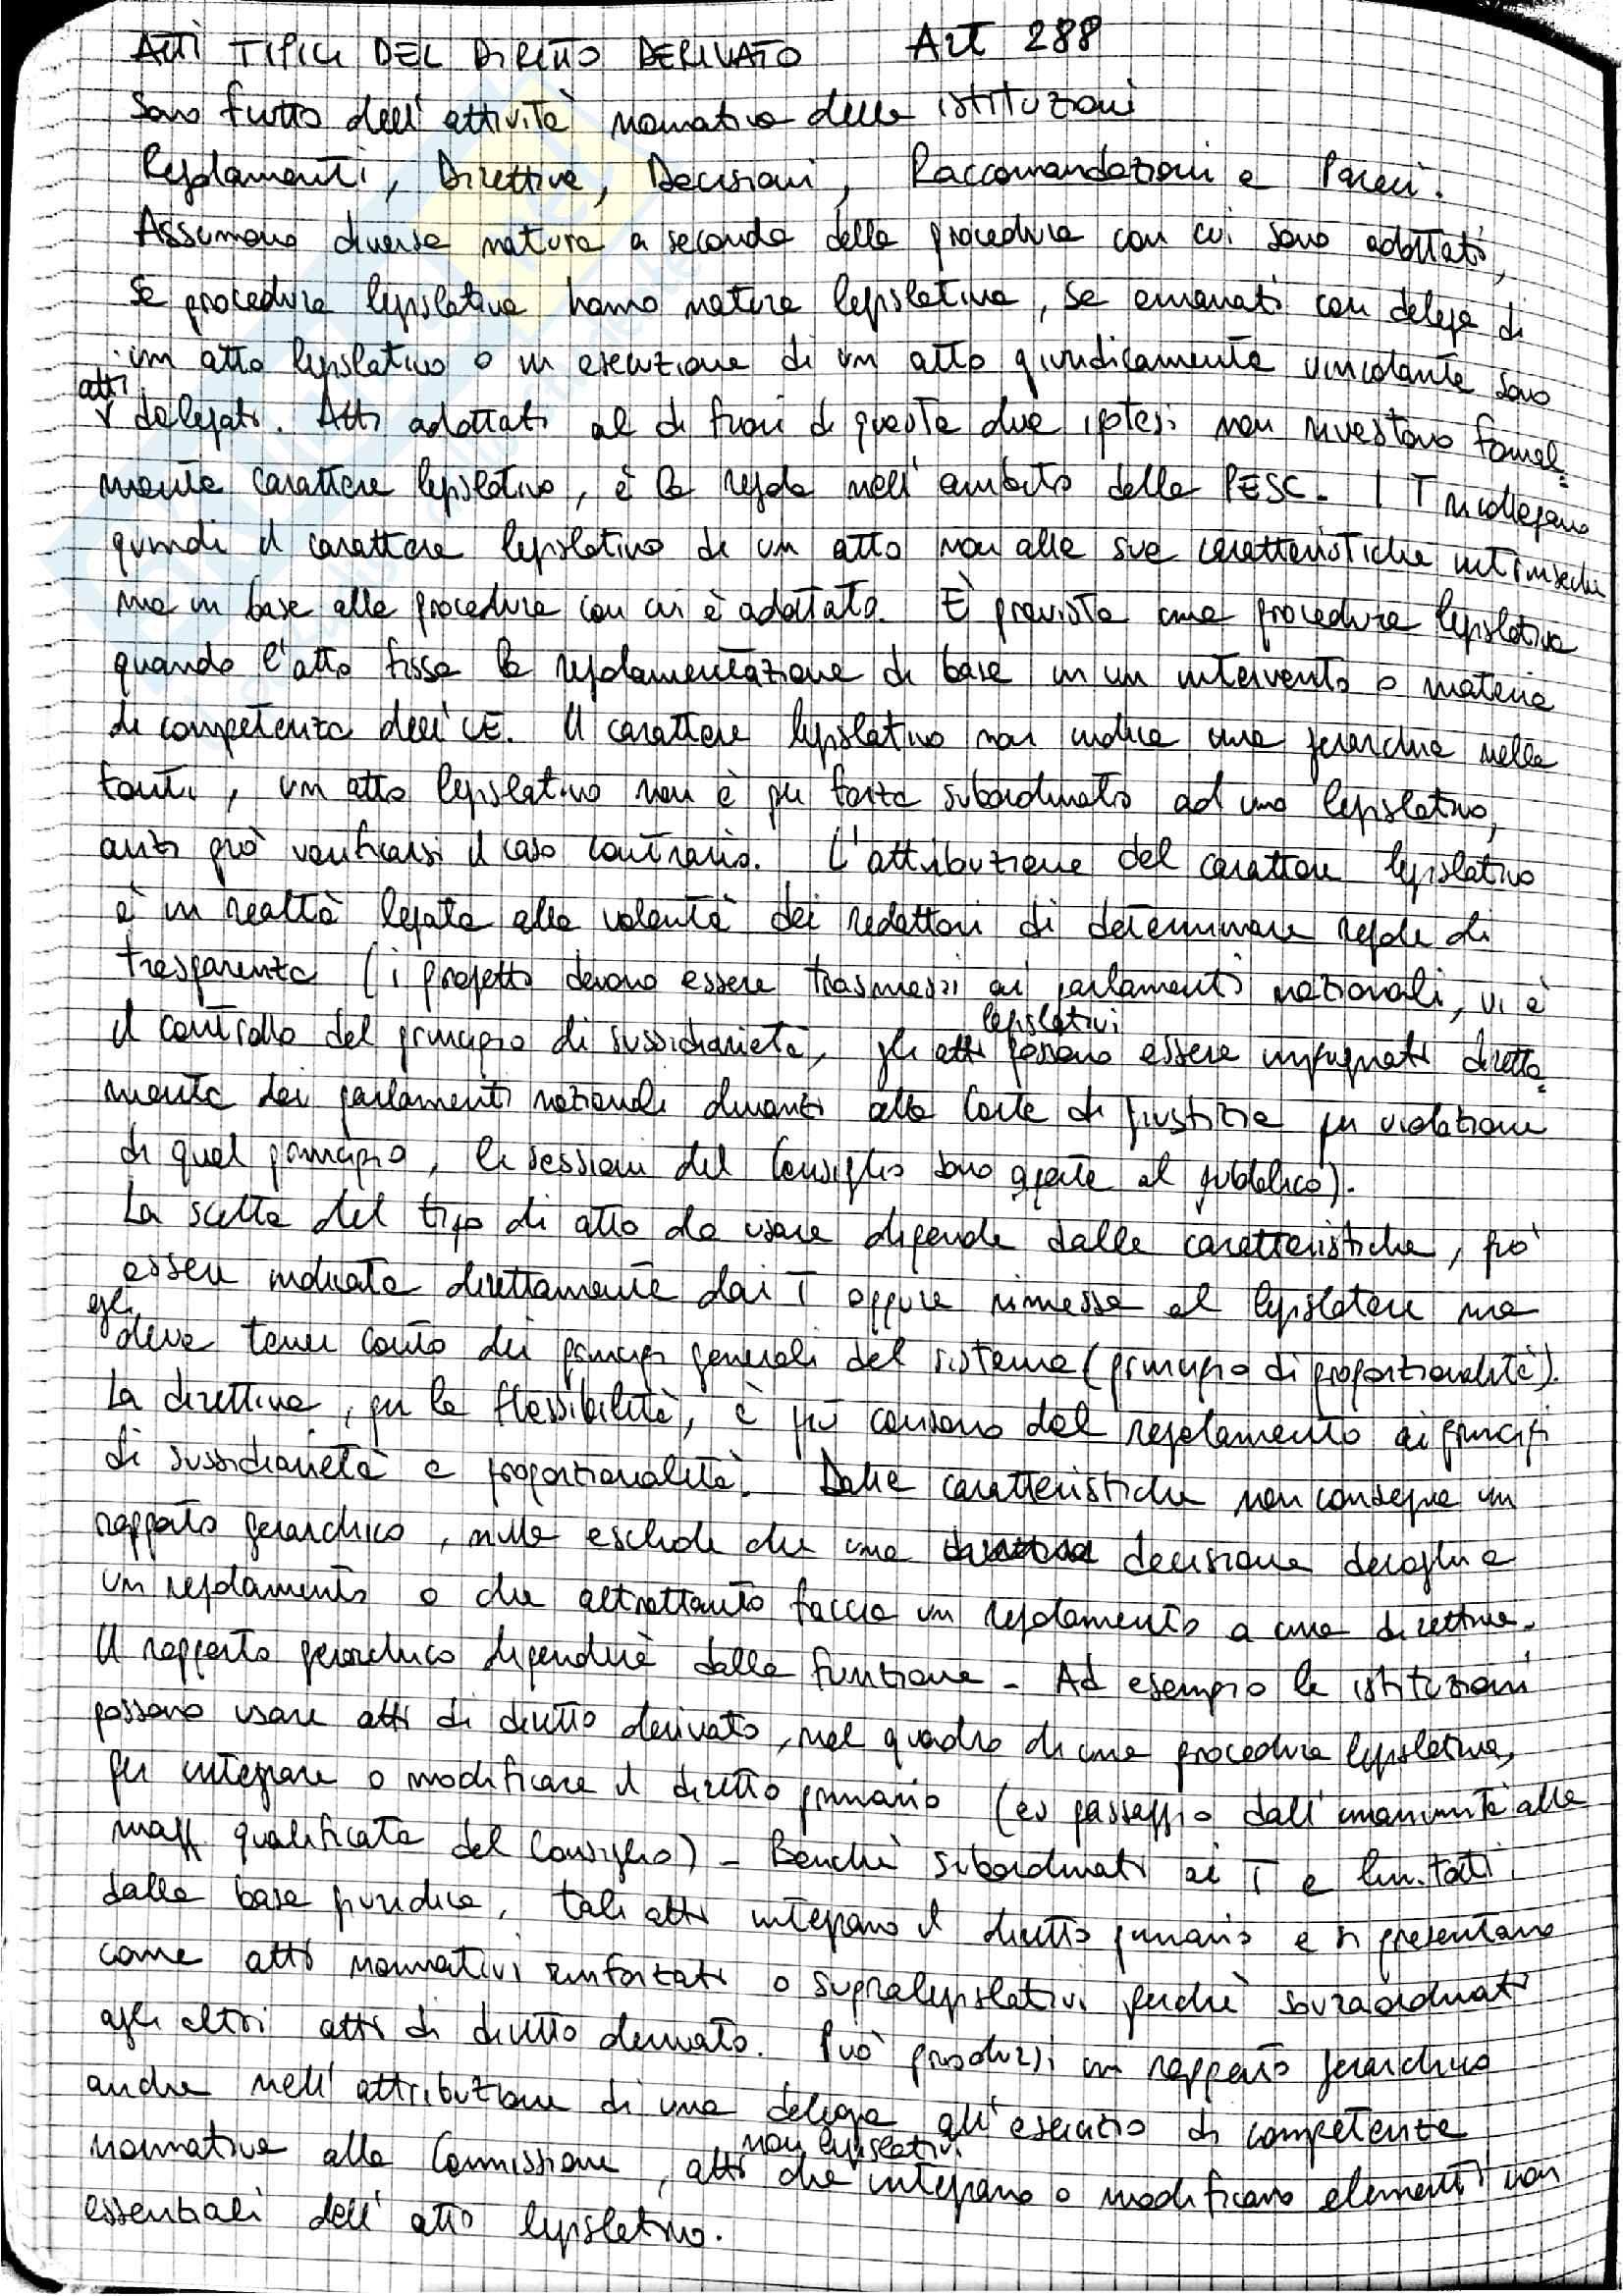 ATTI TIPICI DEL DIRITTO DERIVATO Art 288
Sono frutto dell'attività normativa delle istituzioni
Regolamenti, Direttive, Decisioni, Raccomandazioni e Pareri.
Assumono diversa natura a seconda della procedura con cui sono adottati,
se procedura legislativa hanno natura legislativa, se emanati con delega di
un atto legislativo o in esecuzione di un atto giuridicamente vincolante sono
atti delegati. Atti adottati al di fuori di queste due ipotesi non rivestono formal=
mente carattere legislativo, è la regola nell'ambito della PESC. I T ricollegano
quindi il carattere legislativo di un atto non alle sue caratteristiche intrinseche
ma in base alla procedura con cui è adottato. È prevista una procedura legislativa
quando l'atto fissa la regolamentazione di base in un intervento o materia
di competenza dell'UE. Il carattere legislativo non indica una gerarchia nelle
fonti, un atto legislativo non è per forza subordinato ad uno legislativo,
anzi può verificarsi il caso contrario. L'attribuzione del carattere legislativo
è in realtà legata alla volontà dei redattori di determinare regole di
trasparenza (i progetti devono essere trasmessi ai parlamenti nazionali, vi è
il controllo del principio di sussidiarietà, gli atti legislativi possono essere impugnati diretta=
mente dai parlamenti nazionali dinanzi alla Corte di giustizia per violazione
di quel principio, le sessioni del Consiglio sono aperte al pubblico).
La scelta del tipo di atto da usare dipende dalle caratteristiche, può
essere indicata direttamente dai T oppure rimessa al legislatore ma
egli deve tener conto dei principi generali del sistema (principio di proporzionalità).
La direttiva, per la flessibilità, è più consona del regolamento ai principi
di sussidiarietà e proporzionalità. Dalle caratteristiche non consegue un
rapporto gerarchico, nulla esclude che una decisione deroghi a
un regolamento o che altrettanto faccia un regolamento a una direttiva.
Il rapporto gerarchico dipenderà dalla funzione - Ad esempio le istituzioni
possono usare atti di diritto derivato, nel quadro di una procedura legislativa,
per integrare o modificare il diritto primario (es passaggio dall'unanimità alla
magg qualificata del Consiglio) - Benchè subordinati ai T e limitati
dalla base giuridica, tali atti integrano il diritto primario e si presentano
come atti normativi rinforzati o supralegislativi perchè sovraordinati
agli altri atti di diritto derivato. Può prodursi un rapporto gerarchico
anche nell'attribuzione di una delega all'esercizio di competenze
normative alla Commissione, atti non legislativi che integrano o modificano elementi non
essenziali dell'atto legislativo.